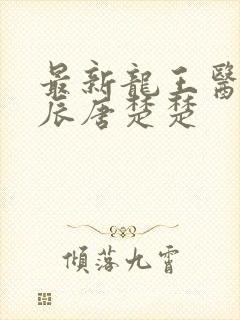 最新龍王醫
辰唐楚楚
傾落九霄